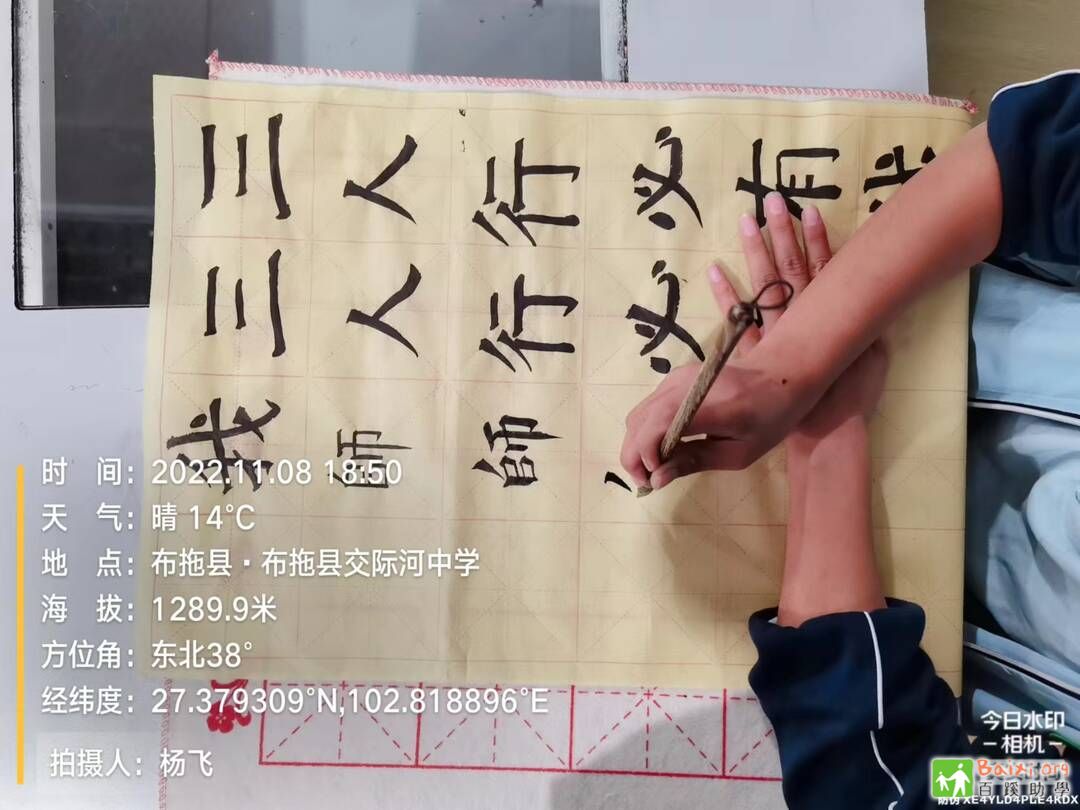 三人行必有我
三人行必
我師師
时 间：2022.11.08 18:50
天 气：晴 14℃
地 点：布拖县·布拖县交际河中学
海 拔：1289.9米
方位角：东北38°
经纬度：27.379309°N,102.818896°E
拍摄人：杨飞
今日水印
相机
Baixi.org
百蹊助學